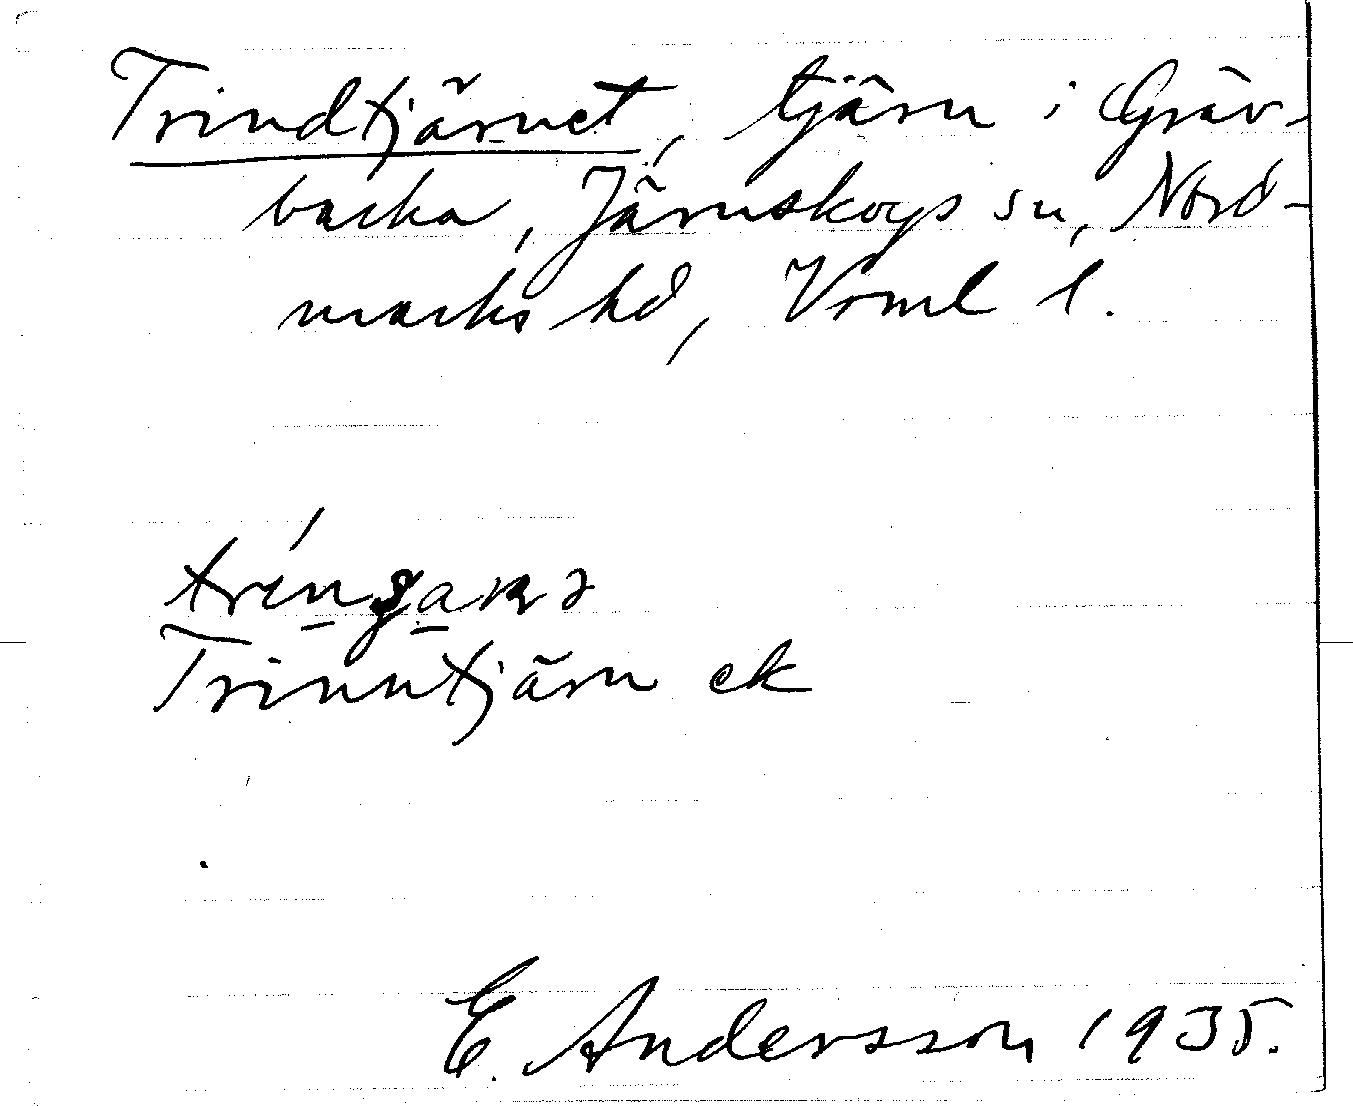 Trindtjärnet, tjärn i Gräv-
backa, Järnskogs sn, Nord-
marks hd, Vrml l.
Trinntjärn ek
E. Andersson 1935.